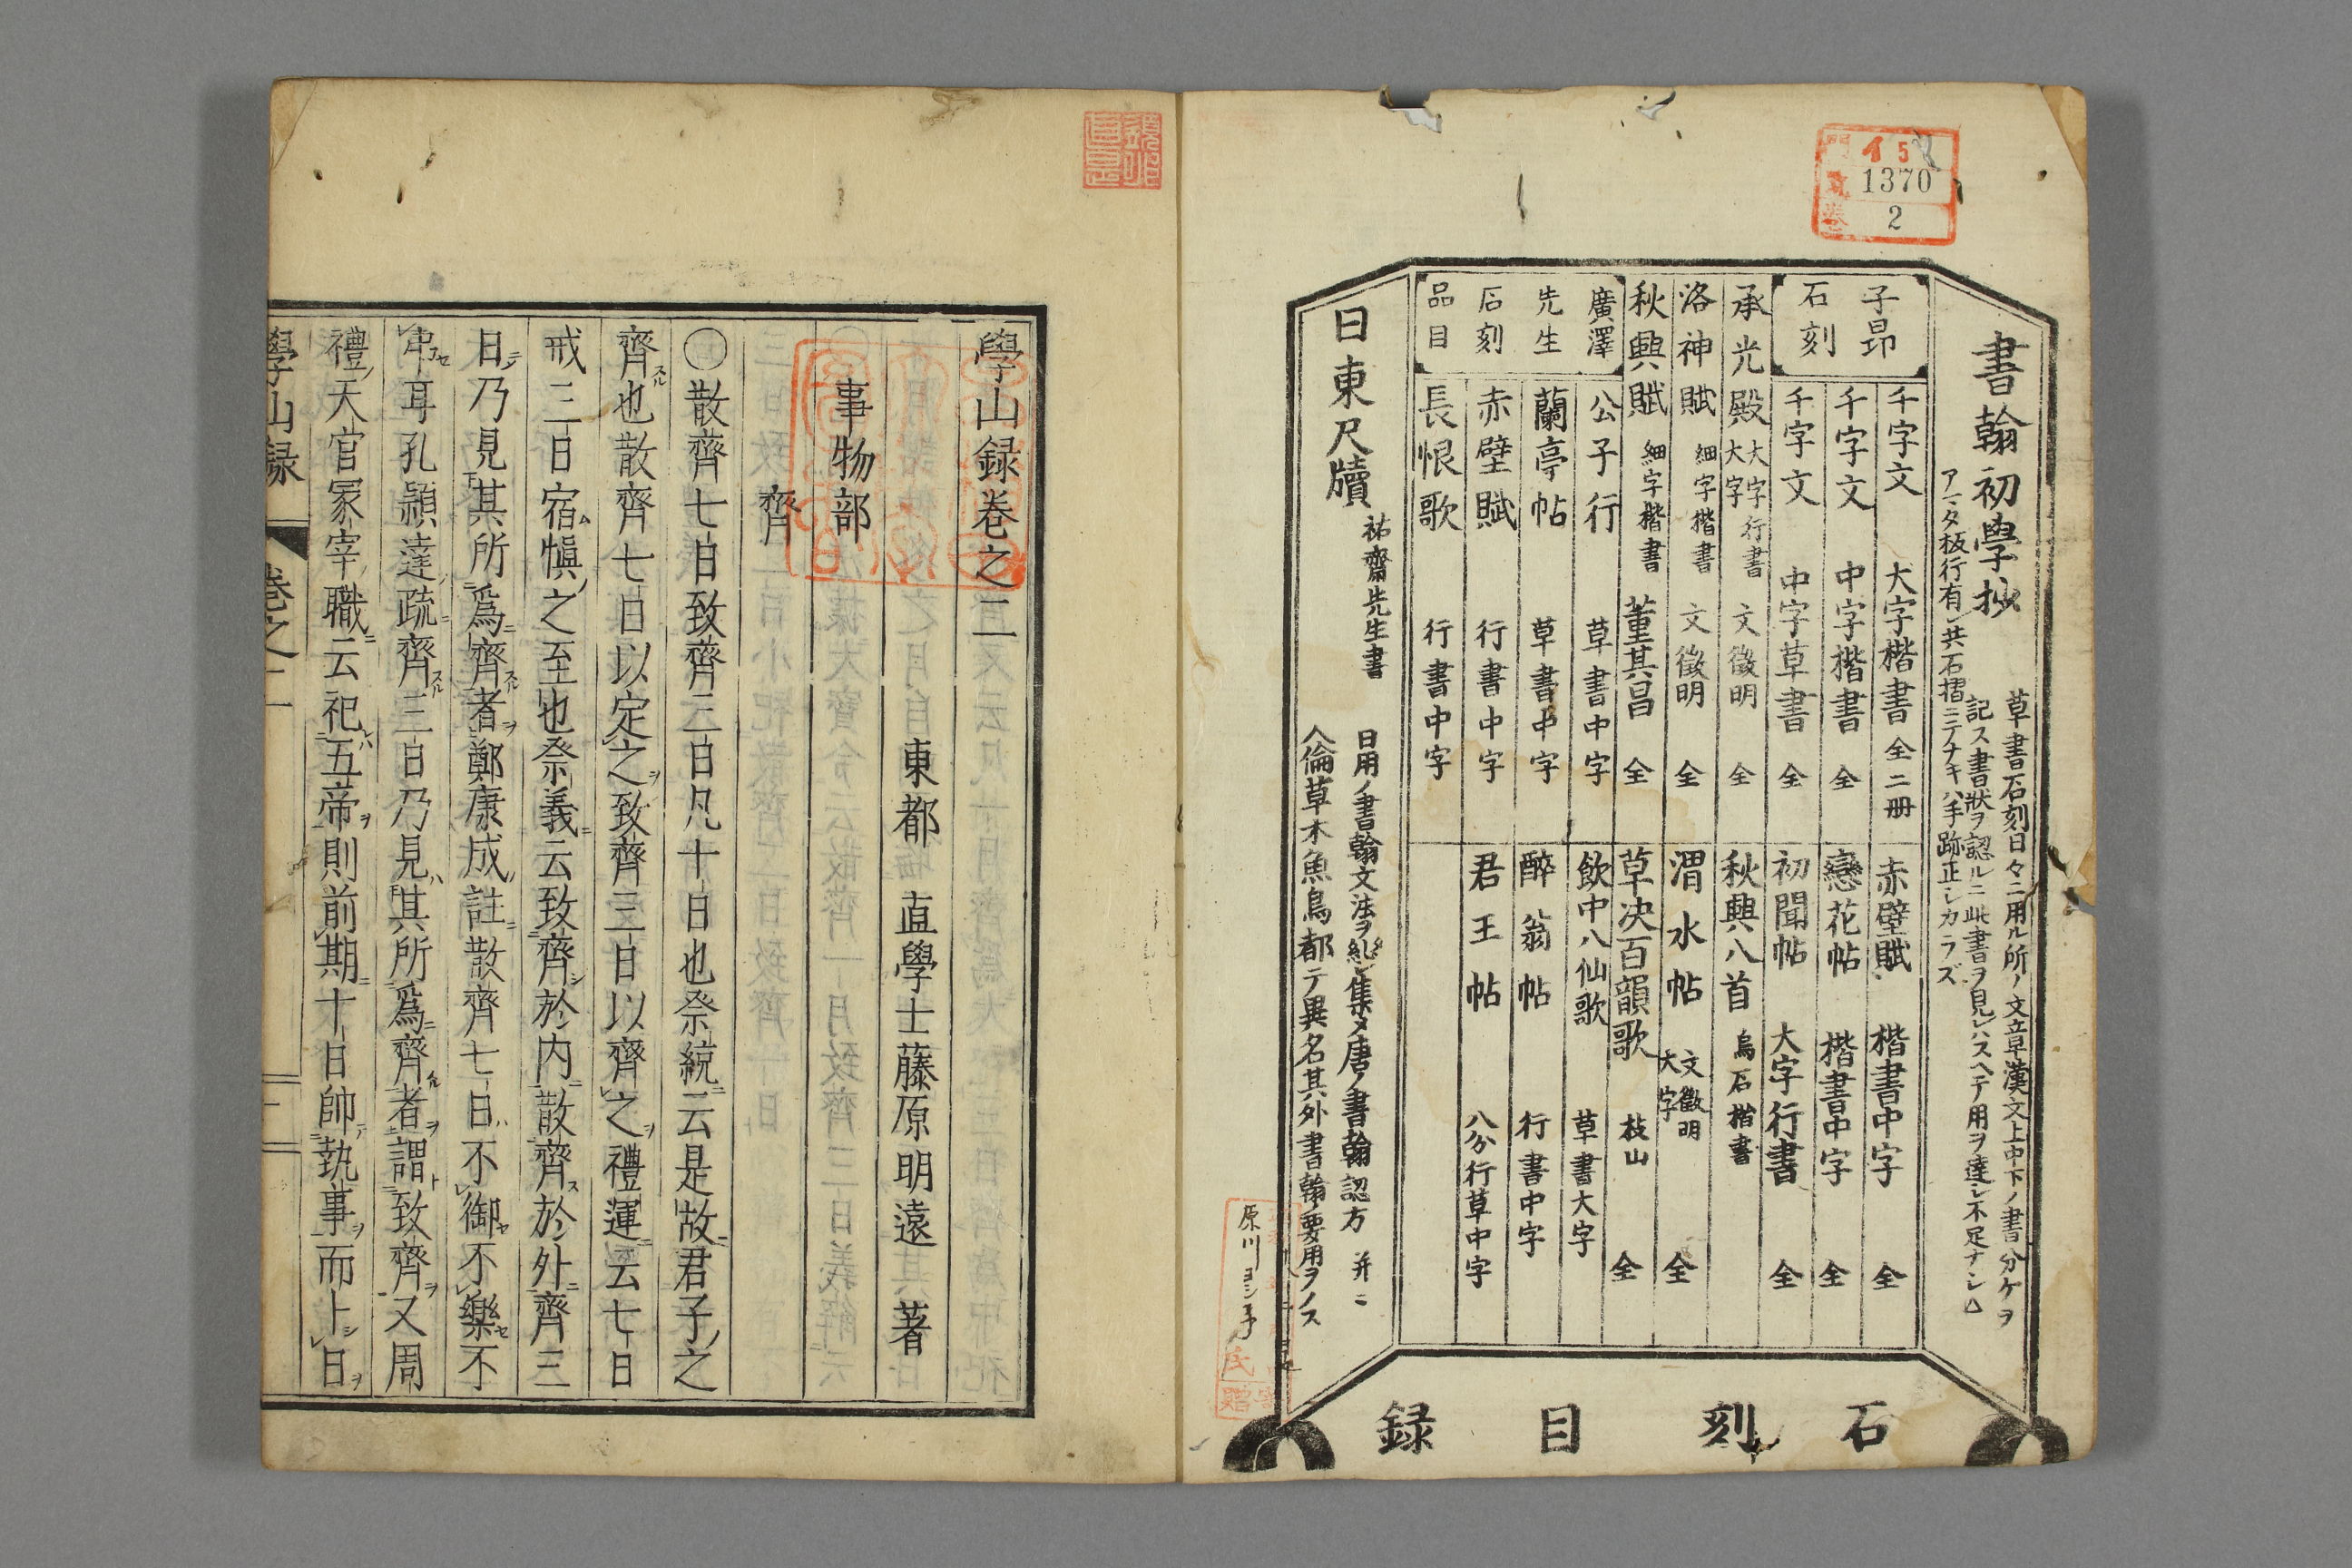 イ5
1370
2
書翰初學抄
草書石刻日々ニ用ル所ノ文立草漢文上中下ノ書分ケヲ
記ス書狀ヲ認ルニ此書ヲ見レハスヘテ用ヲ達シ不足ナシ△
アマタ板行有レ共石摺ニテナキハ手跡正シカラズ
子昂
石刻
千字文 大字楷書 全二册
千字文 中字楷書 全
千字文 中字草書 全
承光殿 大字 大字行書 文徵明 全
洛神賦 細字楷書 文徵明 全
秋興賦 細字楷書 董其昌 全
廣澤
先生
石刻
品目
公子行 草書中字
蘭亭帖 草書中字
赤壁賦 行書中字
長恨歌 行書中字
赤壁賦 楷書中字 全
戀花帖 楷書中字 全
初聞帖 大字行書 全
秋興八首 烏石楷書
渭水帖 文徵明 大字 全
草决百韻歌 枝山 全
飲中八仙歌 草書大字
醉翁帖 行書中字
君王帖 八分行草中字
日東尺牘 祐齋先生書
日用ノ書翰文法ヲ糺シ集メ唐ノ書翰認方 并ニ
人倫草木魚鳥都テ異名其外書翰ノ要用ヲノス
石刻目録
原川
學山録卷之二
東都 直學士藤原明遠 著
事物部
齊
〇散齊七日致齊三日凡十日也祭統ニ云是故ニ君子ノ之
齊スル也散齊七日以定之ヲ致齊三日以齊之ヲ禮運ニ云七日
戒三日宿ム愼ノ之至也祭義ニ云致齊シ於内ニ散齊ス於外ニ齊三
日ニシテ乃見其所爲ニ齊スル者ヲ鄭康成ノ註ニ散齊七日ハ不御セ不樂セ不
弔セ耳孔穎達ノ疏ニ齊スル三日乃見ハ其所爲ニ齊スル者ヲ謂ト致齊ヲ又周
禮ノ天官冢宰ノ職ニ云祀レハ五帝ヲ則前期ニ十日帥テ執事ヲ而卜シ日ヲ
學山録 卷之二 一